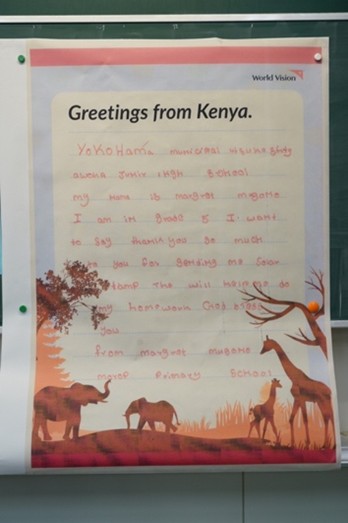 World Vision
Greetings from Kenya.
YoKoHama municipal
Junir High School
my name is margret
I am in Grade 5 I want
to say thank you so much
to you for sending me Solar
Lamp The will help me do
my homework God
you
from margret
Primary School